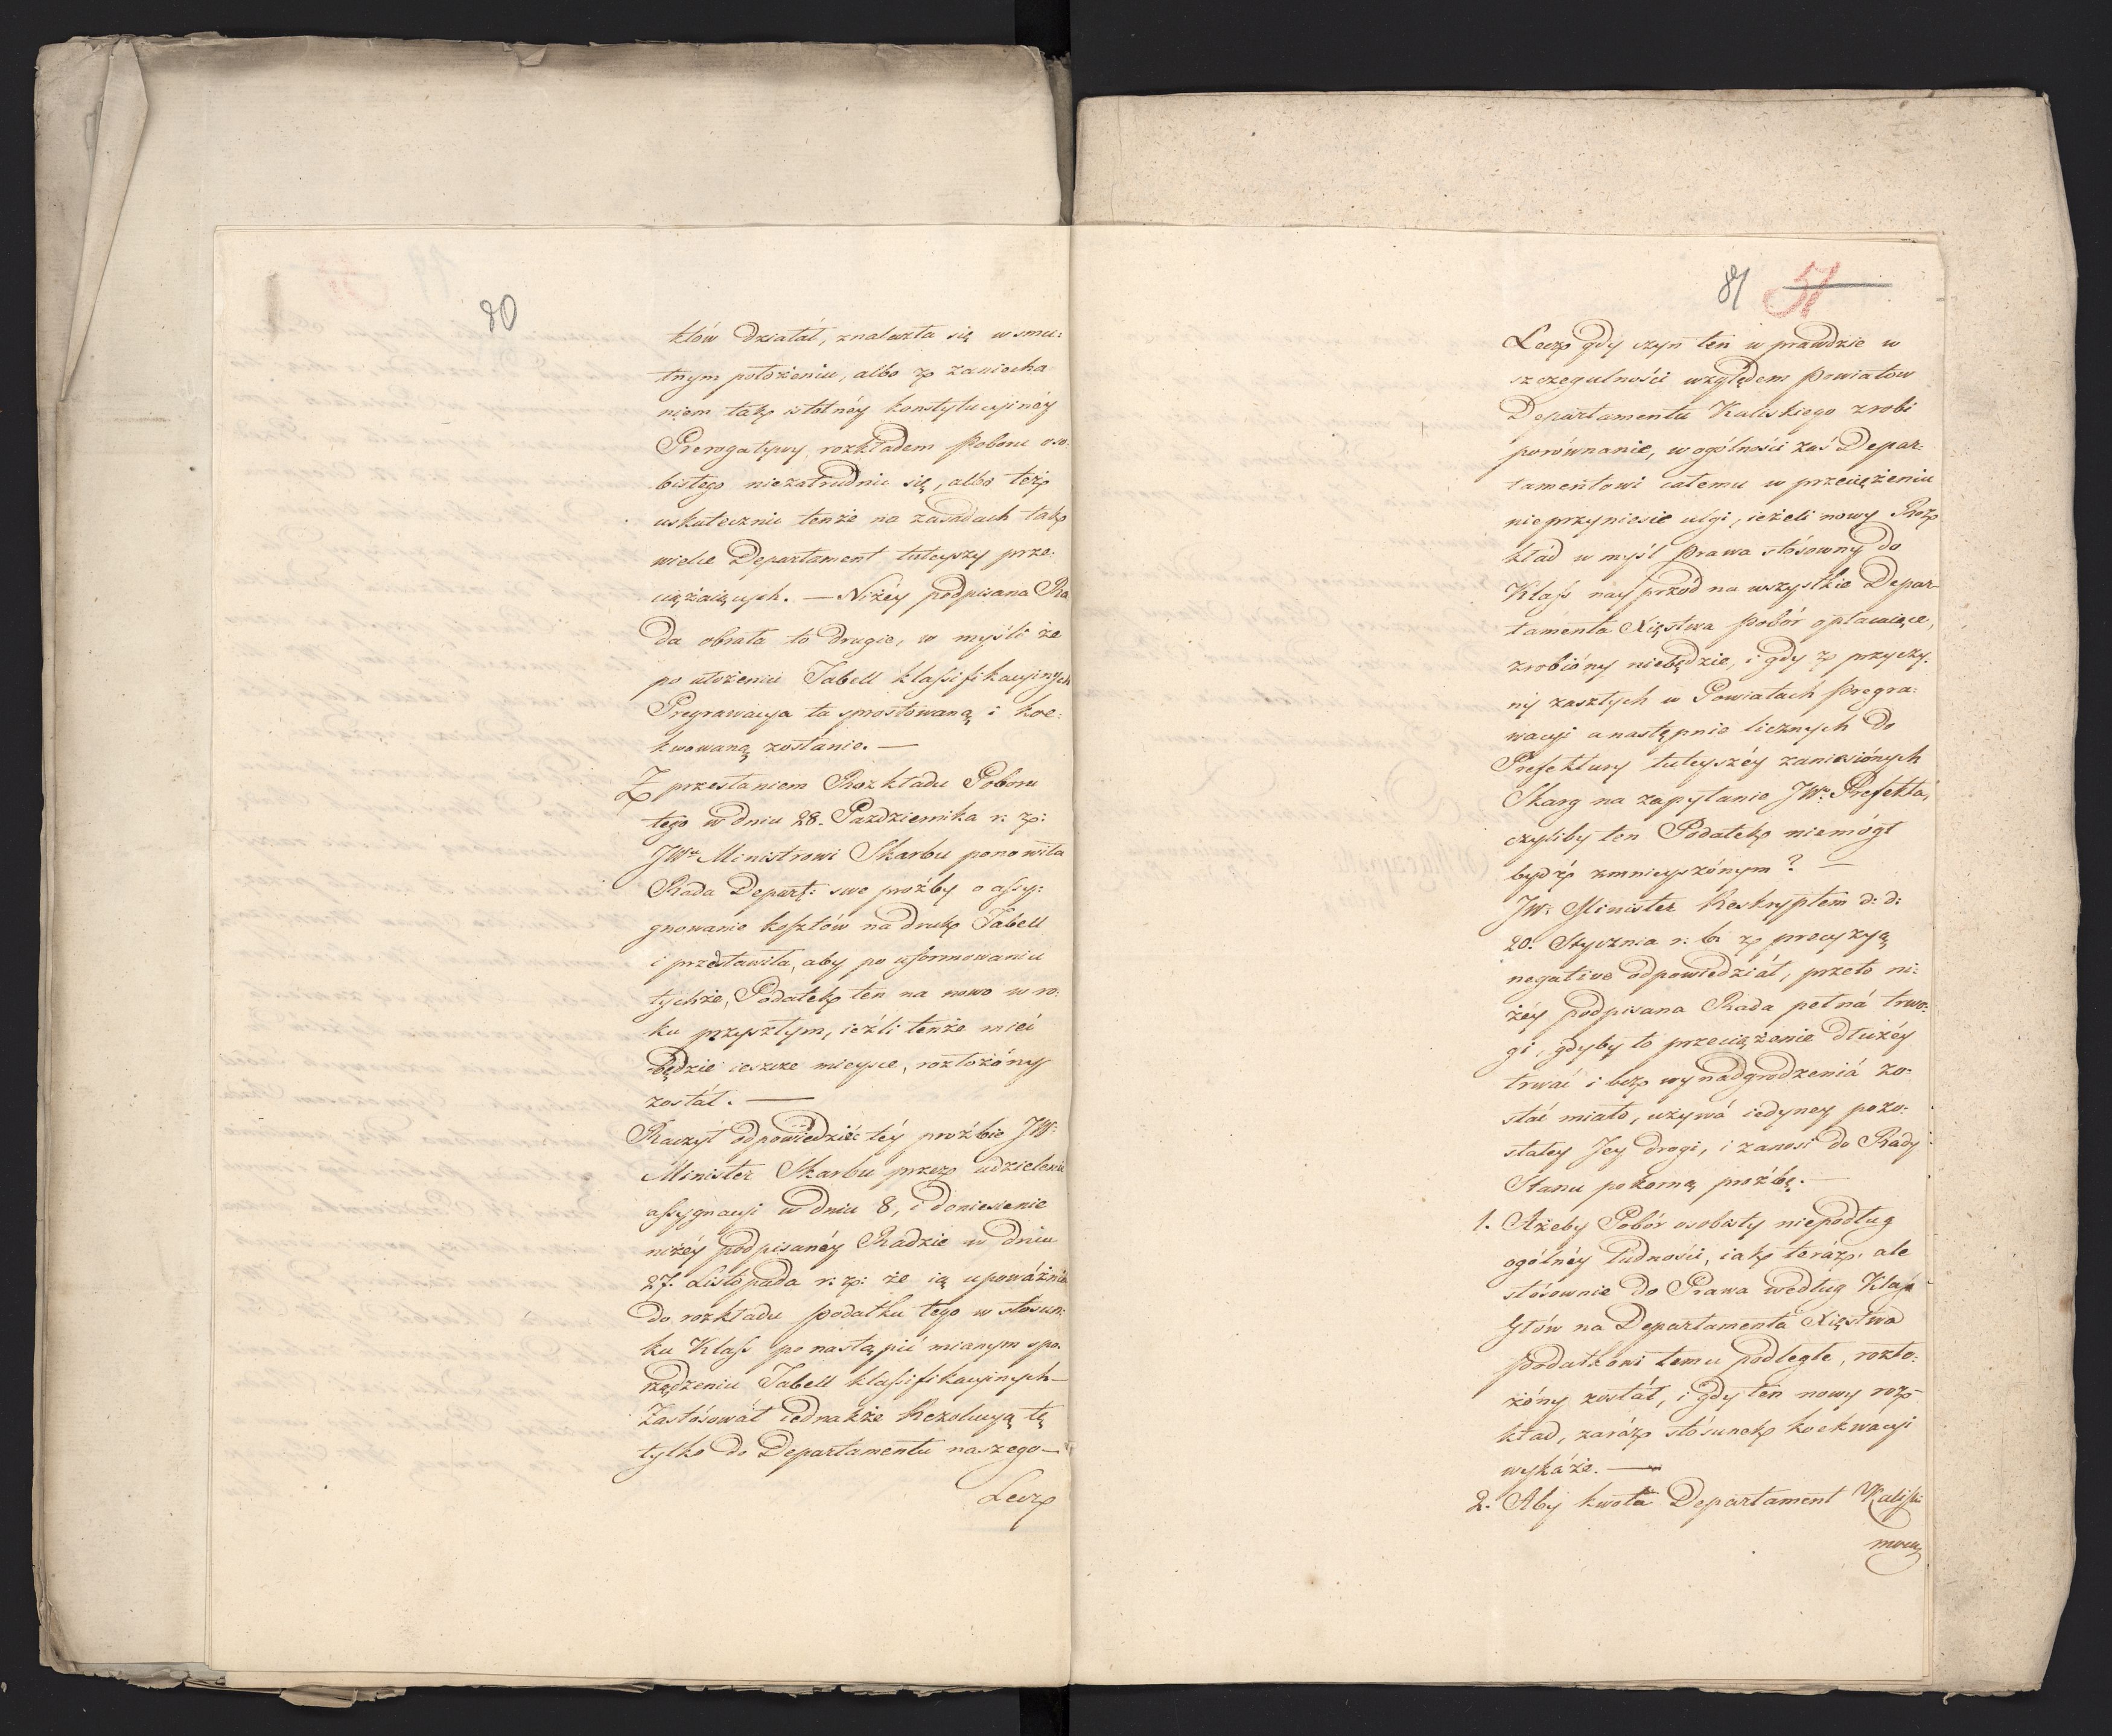 80
któw działał, znalazła się w smu:
tnym położeniu, albo z zaniecha
niem tak istotnéy konstytucyinéy
Prerogatywy rozkładem Poboru oso:
bistego niezatrudnić się, albo też
uskutecznić tenże na zasadach tak
wiele Departament tuteyszy prze:
ciążaiących. — Niżéy podpisana Ra
da obrała to drugie, w myśli że
po ułożeniu Tabell klassifikacyinych
Pregrawacya ta sprostowaną i koe:
kwowaną zostanie. —
Z przesłaniem Rozkładu Poboru
tego w dniu 28. Pazdziernika r: z:
JWu Ministrowi Skarbu ponowiła
Rada Depart: swe prożby o assy:
gnowanie kosztów na druk Tabell
i przedstawiła, aby po uformowaniu
tychże, Podatek ten na nowo w ro:
ku przyszłym, ieźli tenże mieć
będzie ieszcze mieysce, rozłożóny
został. —
Raczył odpowiedzieć téy proźbie JW:
Minister Skarbu przez udzielenie
assygnacyi w dniu 8, i doniesienie
niżéy podpisanéy Radzie w dniu
27. Listopada r: z: że ią upoważnia
do rozkładu podatku tego w stosun:
ku Klass po nastąpić mianym spo:
rządzeniu Tabell klassifikacyinych —
Zastósował iednakże Rezolucyą tę
tylko do Departamentu naszego —
Lecz
81 51
Lecz gdy czyn ten w prawdzie w
szczegulności względem Powiatow
Departamentu Kaliskiego zrobi
porównanie, w ogólności zaś Depar:
tamentowi całemu w przeciężeniu
nieprzyniesie ulgi, ieżeli nowy Roz
kład w myśl Prawa stósowny do
Klass nayprzód na wszystkie Depar-
tamenta Xięstwa Pobór opłacaiące,
zrobióny niebędzie, i gdy z przyczy:
ny zaszłych w Powiatach Pregra:
wacyi a następnie licznych do
Prefektury tuteyszéy zaniesiónych
Skarg na zapytanie JWo Prefekta,
czyliby ten Podatek niemógł
bydź zmnieyszónym? —
JW: Minister Reskryptem d: d:
20. Stycznia r: b: z precyzyą
negative odpowiedział, przeto ni:
żéy podpisana Rada pełná trwo:
gi, gdyby to przeciążenie dłużéy
trwać i bez wynadgrodzeniá zo-
stać miało, używá iedyney pozo:
stałey Jey drogi, i zanosi do Rady
Stanu pokorną proźbę. —
1. Ażeby Pobór osobisty niepodług
ogólnéy ludności, iak teráz, ale
stósownie do Prawa według Klass
głów na Departamenta Xięstwa
podatkowi temu podległe, rozło:
żóny został, i gdy ten nowy roz-
kład, zaráz stósunek koekwacyi
wykáże. —
2. Aby kwota Departament Kalisk: